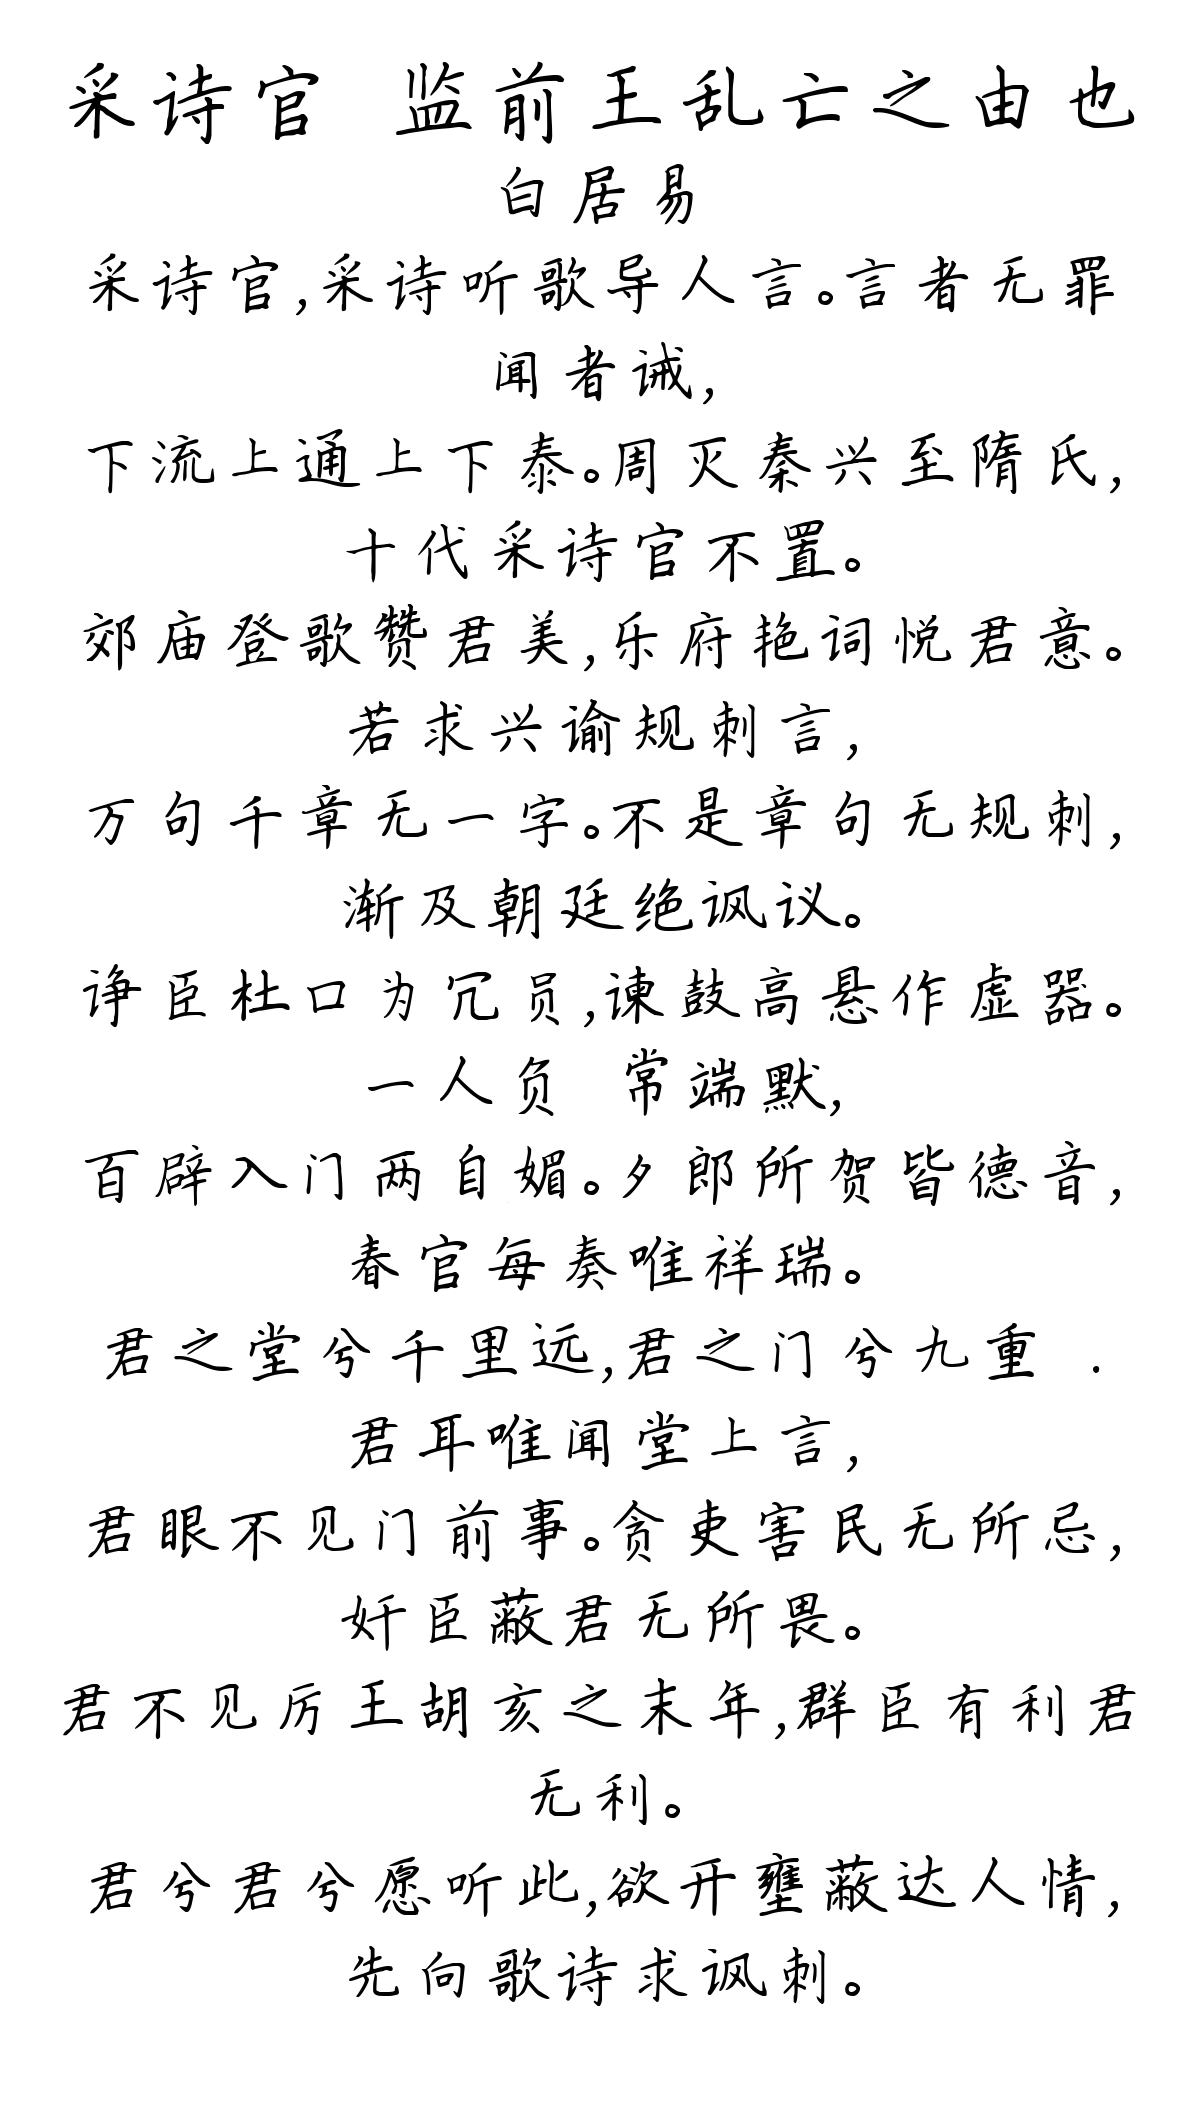 采诗官 监前王乱亡之由也
白居易
采诗官,采诗听歌导人言。言者无罪
闻者诫,
下流上通上下泰。周灭秦兴至隋氏,
十代采诗官不置。
郊庙登歌赞君美,乐府艳词悦君意。
若求兴谕规刺言,
万句千章无一字。不是章句无规刺,
渐及朝廷绝讽议。
诤臣杜口为冗员,谏鼓高悬作虚器。
一人负 常端默,
百辟入门两自媚。夕郎所贺皆德音,
春官每奏唯祥瑞。
君之堂兮千里远,君之门兮九重 .
君耳唯闻堂上言,
君眼不见门前事。贪吏害民无所忌,
奸臣蔽君无所畏。
君不见厉王胡亥之末年,群臣有利君
无利。
君兮君兮愿听此,欲开壅蔽达人情,
先向歌诗求讽刺。